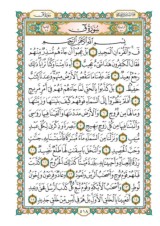 سُورَةُ قٓ
بِسْمِ اللَّهِ الرَّحْمَٰنِ الرَّحِيمِ
قٓ وَالْقُرْءَانِ الْمَجِيدِ ١ بَلْ عَجِبُوا أَن جَاءَهُم مُّنذِرٌ مِّنْهُمْ
فَقَالَ الْكَافِرُونَ هَٰذَا شَيْءٌ عَجِيبٌ ٢ أَءِذَا مِتْنَا وَكُنَّا تُرَابًا ذَٰلِكَ
رَجْعٌ بَعِيدٌ ٣ قَدْ عَلِمْنَا مَا تَنقُصُ الْأَرْضُ مِنْهُمْ وَعِندَنَا كِتَابٌ
حَفِيظٌ ٤ بَلْ كَذَّبُوا بِالْحَقِّ لَمَّا جَاءَهُمْ فَهُمْ فِي أَمْرٍ مَّرِيجٍ
٥ أَفَلَمْ يَنظُرُوا إِلَى السَّمَاءِ فَوْقَهُمْ كَيْفَ بَنَيْنَاهَا وَزَيَّنَّاهَا
وَمَا لَهَا مِن فُرُوجٍ ٦ وَالْأَرْضَ مَدَدْنَاهَا وَأَلْقَيْنَا فِيهَا رَوَاسِيَ
وَأَنبَتْنَا فِيهَا مِن كُلِّ زَوْجٍ بَهِيجٍ ٧ تَبْصِرَةً وَذِكْرَىٰ لِكُلِّ عَبْدٍ
مُّنِيبٍ ٨ وَنَزَّلْنَا مِنَ السَّمَاءِ مَاءً مُّبَارَكًا فَأَنبَتْنَا بِهِ جَنَّاتٍ
وَحَبَّ الْحَصِيدِ ٩ وَالنَّخْلَ بَاسِقَاتٍ لَّهَا طَلْعٌ نَّضِيدٌ ١٠
رِّزْقًا لِّلْعِبَادِ وَأَحْيَيْنَا بِهِ بَلْدَةً مَّيْتًا كَذَٰلِكَ الْخُرُوجُ ١١ كَذَّبَتْ
قَبْلَهُمْ قَوْمُ نُوحٍ وَأَصْحَابُ الرَّسِّ وَثَمُودُ ١٢ وَعَادٌ وَفِرْعَوْنُ
وَإِخْوَانُ لُوطٍ ١٣ وَأَصْحَابُ الْأَيْكَةِ وَقَوْمُ تُبَّعٍ كُلٌّ كَذَّبَ الرُّسُلَ فَحَقَّ
وَعِيدِ ١٤ أَفَعَيِينَا بِالْخَلْقِ الْأَوَّلِ بَلْ هُمْ فِي لَبْسٍ مِّنْ خَلْقٍ جَدِيدٍ ١٥
٥١٨